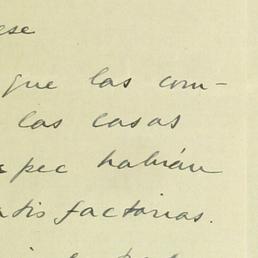 ese
que las com-
las casas
pec habrán
atisfactorias.